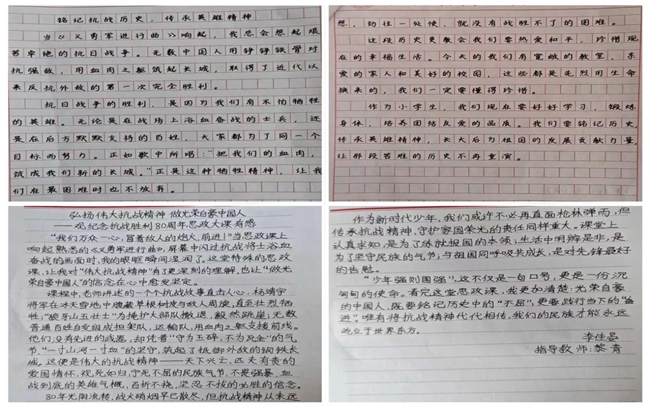 铭记抗战历史，传承英雄精神
当《义勇军进行曲》响起，我总会想起艰
苦卓绝的抗日战争。无数中国人用铮铮铁骨对
抗强敌，用血肉之躯筑起长城，取得了近代以
来反抗外敌的第一次完全胜利。
抗日战争的胜利，是因为我们有不怕牺牲
的英雄。无论是在战场上浴血奋战的士兵，还
是在后方默默支持的百姓，大家都为了同一个
目标而努力。正如歌中所唱："把我们的血肉，
筑成我们新的长城。"正是这种牺牲精神，让我
们在最困难时也不放弃。
想，劲往一处使，就没有战胜不了的困难。
这段历史更教会我们要热爱和平，珍惜现
在的幸福生活。今天的我们有宽敞的教室，亲
爱的家人和美好的校园，这些都是先烈用生命
换来的，我们一定要懂得珍惜。
作为小学生，我们现在要好好学习，锻炼
身体，培养团结友爱的品质。我们要铭记历史，
传承英雄精神，长大后为祖国的发展贡献力量，
让那段苦难的历史不再重演。
弘扬伟大抗战精神 做光荣自豪中国人
—观纪念抗战胜利80周年思政大课有感
"我们万众一心，冒着敌人的炮火，前进！"当思政课上
响起熟悉的《义勇军进行曲》，屏幕中闪过抗战将士浴血
奋战的画面时，我的眼眶瞬间湿润了。这堂特殊的思政
课，让我对"伟大抗战精神"有了更深刻的理解，也让"做光
荣自豪中国人"的信念在心中愈发坚定。
课程中，老师讲述的一个个抗战故事直击人心：杨靖宇
将军在冰天雪地中嚼着草根树皮与敌人周旋，直至壮烈牺
牲；"狼牙山五壮士"为掩护大部队撤退，毅然跳崖；无数
普通百姓自发组成担架队、运输队，用血肉之躯支援前线。
他们没有先进的武器，却凭着"宁为玉碎，不为瓦全"的气
节，"一寸山河一寸血"的坚守，筑起了抵御外敌的钢铁长
城。这便是伟大的抗战精神——天下兴亡、匹夫有责的
爱国情怀，视死如归、宁死不屈的民族气节，不畏强暴、血
战到底的英雄气概，百折不挠、坚忍不拔的必胜的信念。
80年光阴流转，战火硝烟早已散尽，但抗战精神从未远
作为新时代少年，我们或许不必再直面枪林弹雨，但
传承抗战精神、守护家国荣光的责任同样重大。课堂上
认真求知，是为了练就报国的本领；生活中明辨是非，是
为了坚守民族的气节；与祖国同呼吸共成长，是对先锋最好
的告慰。
"少年强则国强"，这不仅是一句口号，更是一份沉
甸甸的使命。看完这堂思政课，我更加清楚：光荣自豪
的中国人，既要铭记历史中的"不屈"，更要践行当下的"奋
进"。唯有将抗战精神代代相传，我们的民族才能永远
屹立于世界东方。
李佳
指导教师：樊青